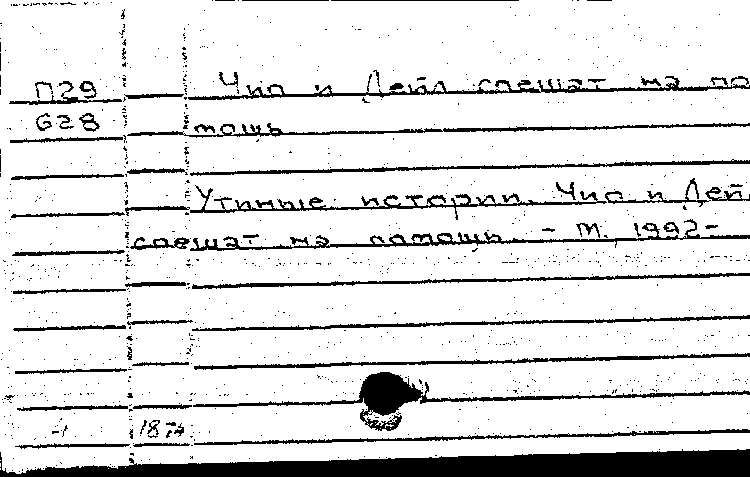 П29 Чип и Дейл спешат на по
G28 мощь
Утиные истории. Чип и Дей
спешат на помощь. - М., 1992-